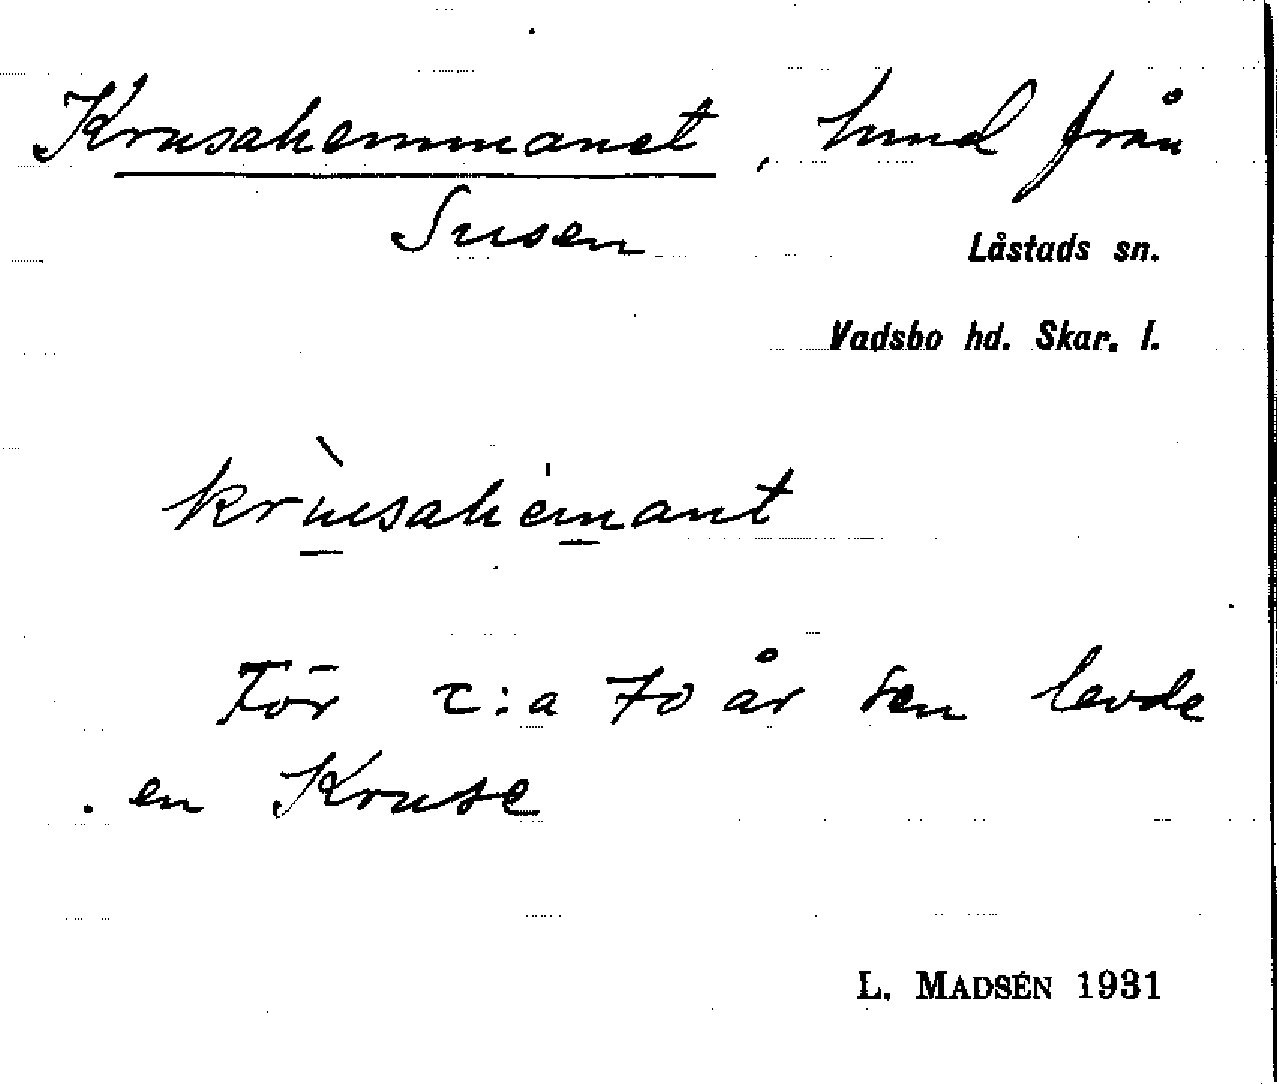 Krusahemmanet, hmd från
Susen
Låstads sn.
Vadsbo hd. Skar. l.
krùusahemant
För c:a 70 år sen levde
en Kruse
L. MADSÉN 1931